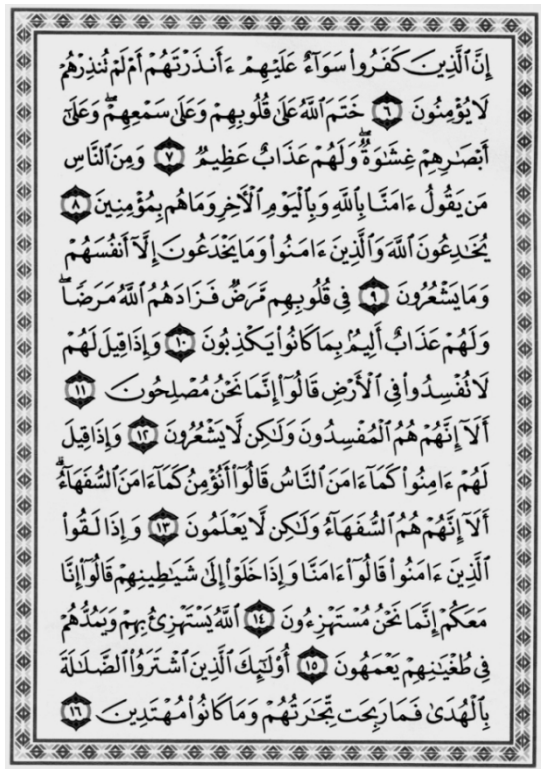 إِنَّ ٱلَّذِينَ كَفَرُوا۟ سَوَآءٌ عَلَيْهِمْ ءَأَنذَرْتَهُمْ أَمْ لَمْ تُنذِرْهُمْ
لَا يُؤْمِنُونَ ٦ خَتَمَ ٱللَّهُ عَلَىٰ قُلُوبِهِمْ وَعَلَىٰ سَمْعِهِمْ ۖ وَعَلَىٰٓ
أَبْصَـٰرِهِمْ غِشَـٰوَةٌ ۖ وَلَهُمْ عَذَابٌ عَظِيمٌ ٧ وَمِنَ ٱلنَّاسِ
مَن يَقُولُ ءَامَنَّا بِٱللَّهِ وَبِٱلْيَوْمِ ٱلْـَٔاخِرِ وَمَا هُم بِمُؤْمِنِينَ ٨
يُخَـٰدِعُونَ ٱللَّهَ وَٱلَّذِينَ ءَامَنُوا۟ وَمَا يَخْدَعُونَ إِلَّآ أَنفُسَهُمْ
وَمَا يَشْعُرُونَ ٩ فِى قُلُوبِهِم مَّرَضٌ فَزَادَهُمُ ٱللَّهُ مَرَضًا ۖ
وَلَهُمْ عَذَابٌ أَلِيمٌۢ بِمَا كَانُوا۟ يَكْذِبُونَ ١٠ وَإِذَا قِيلَ لَهُمْ
لَا تُفْسِدُوا۟ فِى ٱلْأَرْضِ قَالُوٓا۟ إِنَّمَا نَحْنُ مُصْلِحُونَ ١١
أَلَآ إِنَّهُمْ هُمُ ٱلْمُفْسِدُونَ وَلَـٰكِن لَّا يَشْعُرُونَ ١٢ وَإِذَا قِيلَ
لَهُمْ ءَامِنُوا۟ كَمَآ ءَامَنَ ٱلنَّاسُ قَالُوٓا۟ أَنُؤْمِنُ كَمَآ ءَامَنَ ٱلسُّفَهَآءُ ۗ
أَلَآ إِنَّهُمْ هُمُ ٱلسُّفَهَآءُ وَلَـٰكِن لَّا يَعْلَمُونَ ١٣ وَإِذَا لَقُوا۟
ٱلَّذِينَ ءَامَنُوا۟ قَالُوٓا۟ ءَامَنَّا وَإِذَا خَلَوْا۟ إِلَىٰ شَيَـٰطِينِهِمْ قَالُوٓا۟ إِنَّا
مَعَكُمْ إِنَّمَا نَحْنُ مُسْتَهْزِءُونَ ١٤ ٱللَّهُ يَسْتَهْزِئُ بِهِمْ وَيَمُدُّهُمْ
فِى طُغْيَـٰنِهِمْ يَعْمَهُونَ ١٥ أُو۟لَـٰٓئِكَ ٱلَّذِينَ ٱشْتَرَوُا۟ ٱلضَّلَـٰلَةَ
بِٱلْهُدَىٰ فَمَا رَبِحَت تِّجَـٰرَتُهُمْ وَمَا كَانُوا۟ مُهْتَدِينَ ١٦